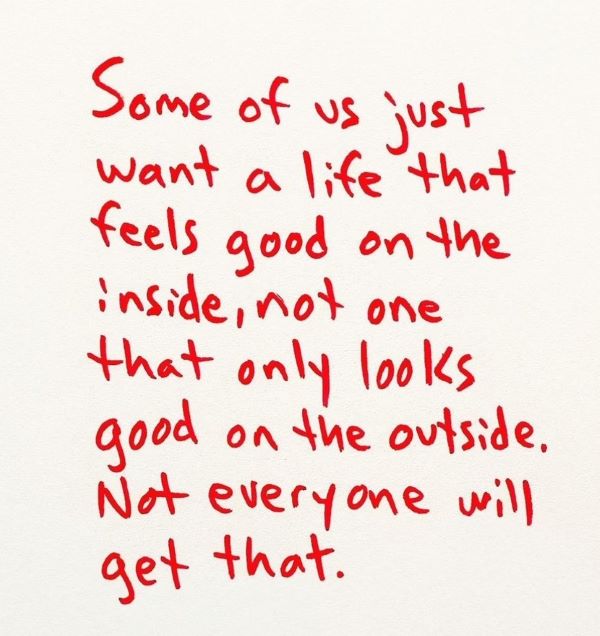 Some of us just
want a life that
feels good on the
inside, not one
that only looks
good on the outside.
Not everyone will
get that.